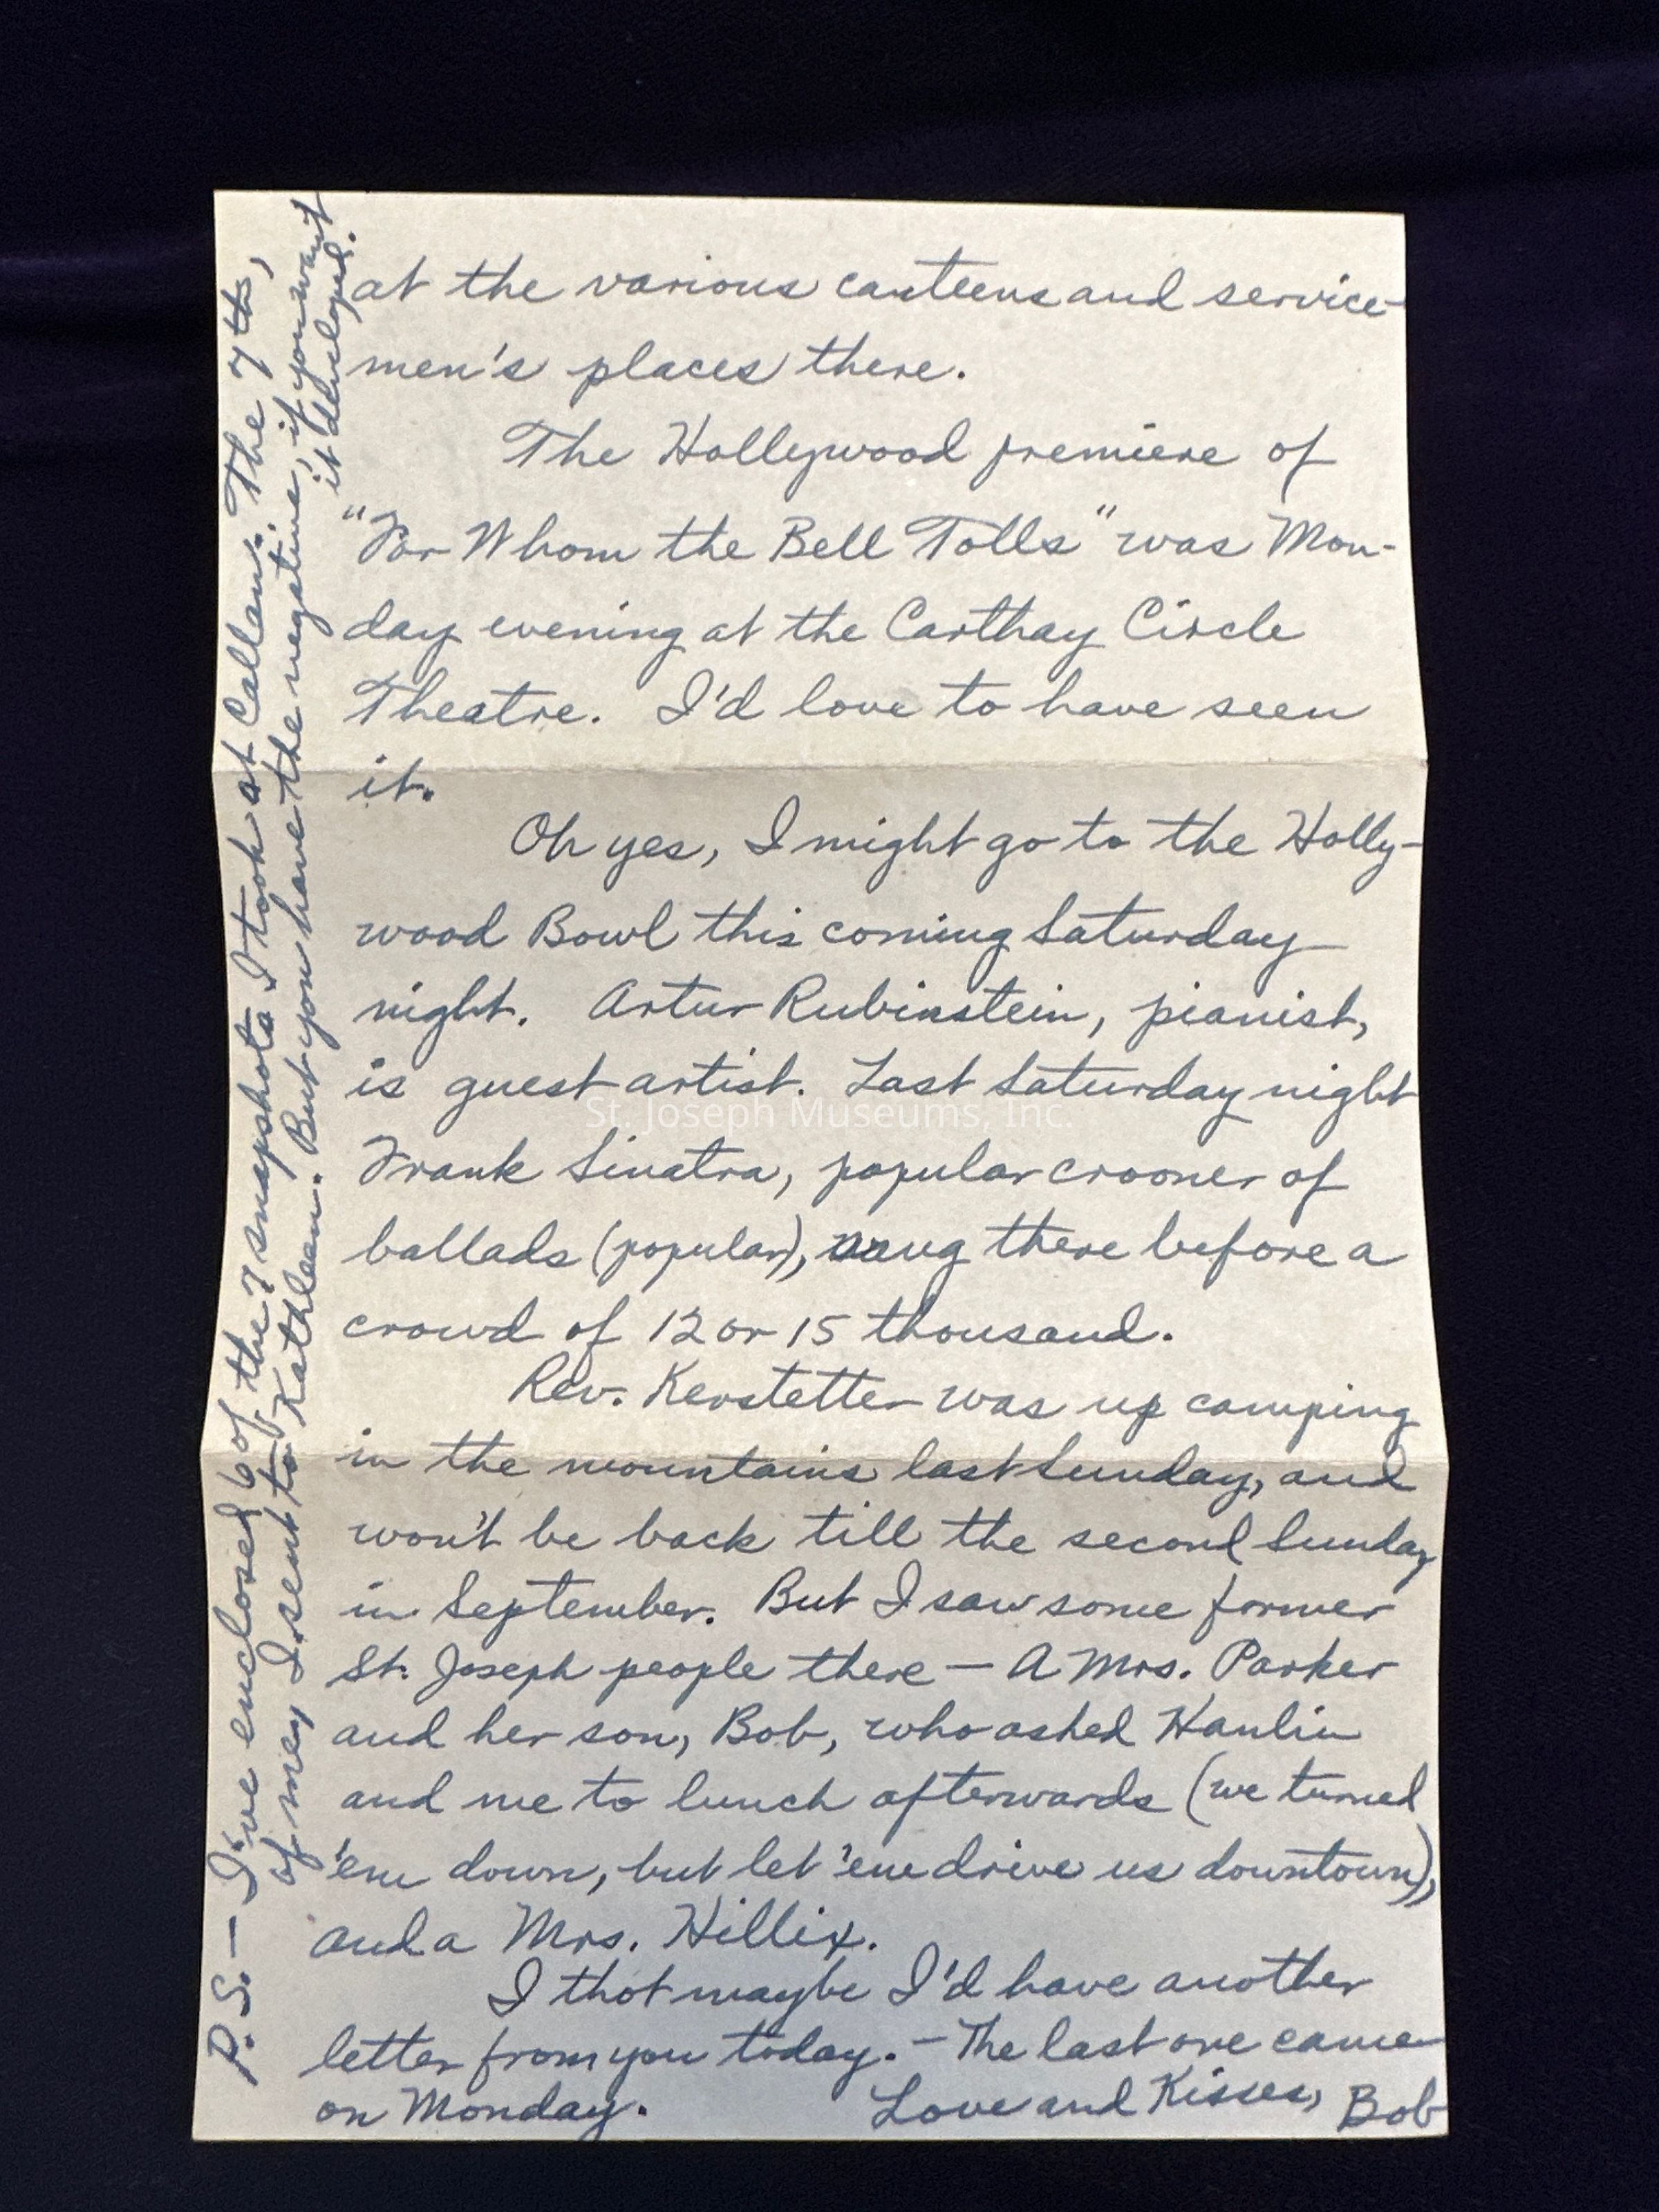 at the various canteens and service-
men's places there.
The Hollywood premiere of
"For Whom the Bell Tolls" was Mon-
day evening at the Carthay Circle
Theatre. I'd love to have seen
it.
Oh yes, I might go to the Holly-
wood Bowl this coming Saturday
night. Artur Rubinstein, pianist,
is guest artist. Last Saturday night
St. Joseph Museums, Inc.
Frank Sinatra, popular crooner of
ballads (popular), sang there before a
crowd of 12 or 15 thousand.
Rev. Kerstetter was up camping
in the mountains last Sunday, and
won't be back till the second Sunday
in September. But I saw some former
St. Joseph people there — A Mrs. Parker
and her son, Bob, who asked Hanlin
and me to lunch afterwards (we turned
'em down, but let 'em drive us downtown),
and a Mrs. Hillix.
I thot maybe I'd have another
letter from you today. - The last one came
on Monday. Love and Kisses, Bob
P.S. — I've enclosed 6 of the 7 snapshots I took at Callan. The 7th,
of me, I sent to Kathleen. But you have the negative, if you want
it developed.